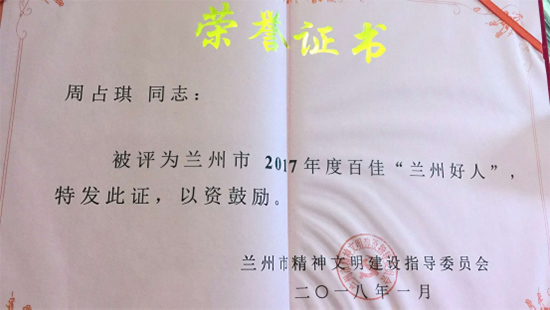 荣誉证书
周占琪 同志：
被评为兰州市 2017年度百佳“兰州好人”，
特发此证，以资鼓励。
兰州市精神文明建设指导委员会
二〇一八年一月